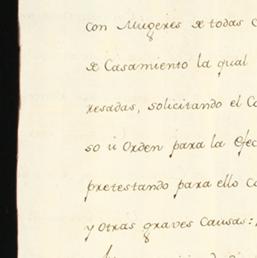 con Mugeres de todas
de Casamiento la qual
resadas, solicitando el
so ù Orden para la
pretestando para ello
y otras graves Causas: